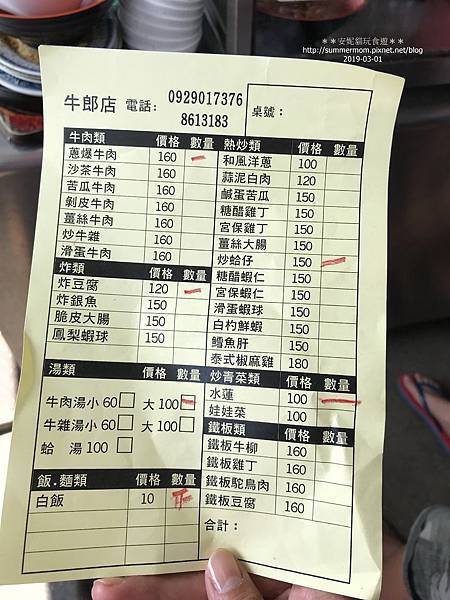 ＊＊安妮貓玩食遊＊＊
http://summermom.pixnet.net/blog
2019-03-01
牛郎店 電話： 0929017376
8613183
桌號：
牛肉類 價格 數量
蔥爆牛肉 160
沙茶牛肉 160
苦瓜牛肉 160
剝皮牛肉 160
薑絲牛肉 160
炒牛雜 160
滑蛋牛肉 160
炸類 價格 數量
炸豆腐 120
炸銀魚 150
脆皮大腸 150
鳳梨蝦球 150
湯類 價格 數量
牛肉湯小60 大100
牛雜湯小60 大100
蛤 湯 100
飯.麵類 價格 數量
白飯 10
熱炒類 價格 數量
和風洋蔥 100
蒜泥白肉 120
鹹蛋苦瓜 150
糖醋雞丁 150
宮保雞丁 150
薑絲大腸 150
炒蛤仔 150
糖醋蝦仁 150
宮保蝦仁 150
滑蛋蝦球 150
白灼鮮蝦 150
鱈魚肝 150
泰式椒麻雞 180
炒青菜類 價格 數量
水蓮 100
娃娃菜 100
鐵板類 價格 數量
鐵板牛柳 160
鐵板雞丁 160
鐵板鴕鳥肉 160
鐵板豆腐 160
合計：